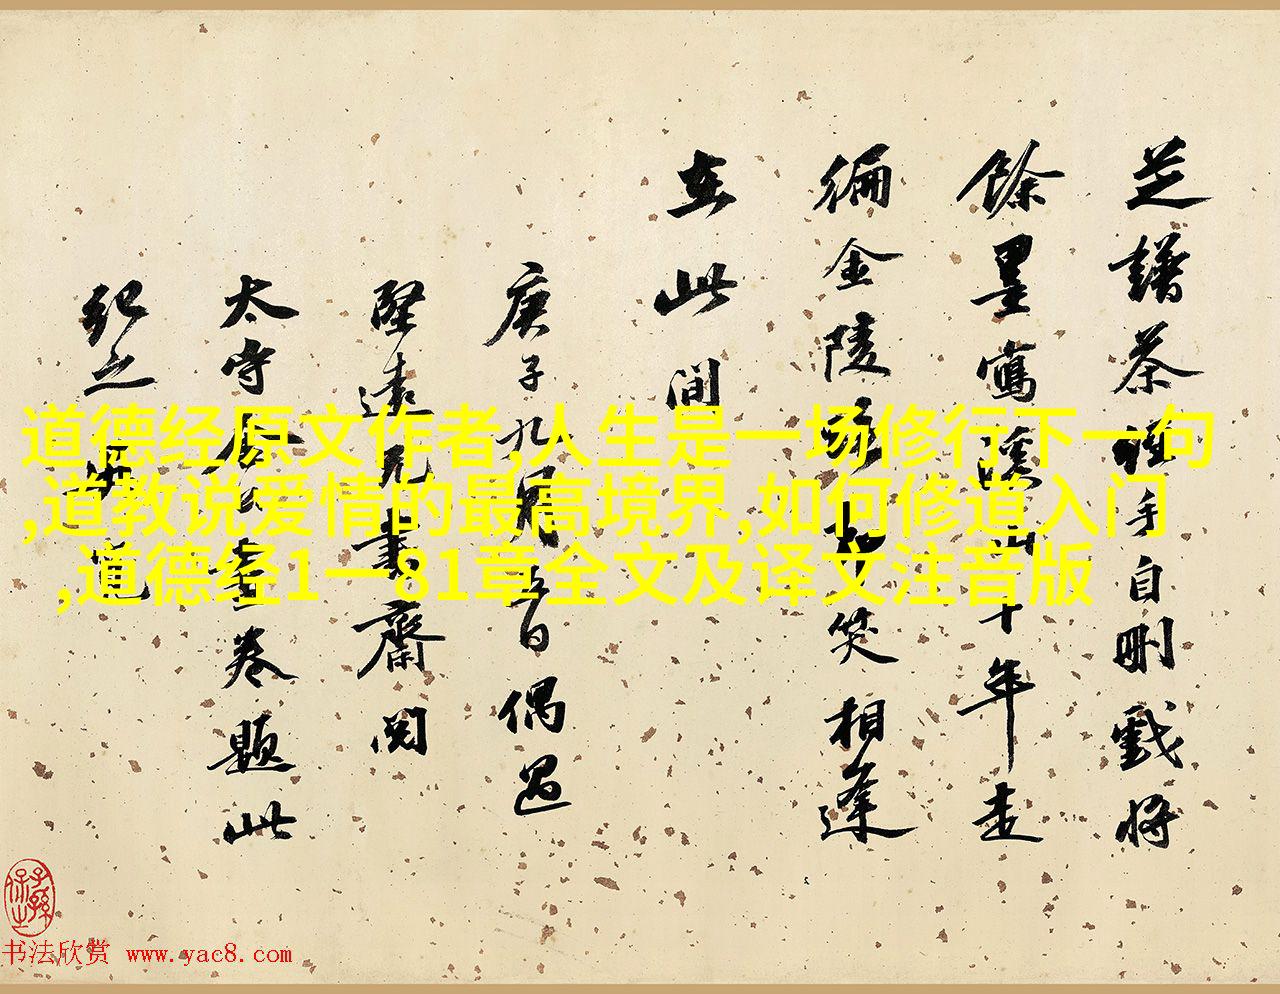 芝譜茶手自刪戲將
餘墨寫溪山十年走
徧金陵一笑相逢
在此間
庚子九月五日偶過
堅遠兄書齋閱
太守公畫卷題此
紀之也
道德经原文作者,人生是一场修行下一句
,道教说爱情的最高境界,如何修道入门
,道德经1一81章全文及译文注音版
书法欣赏 www.yac8.com